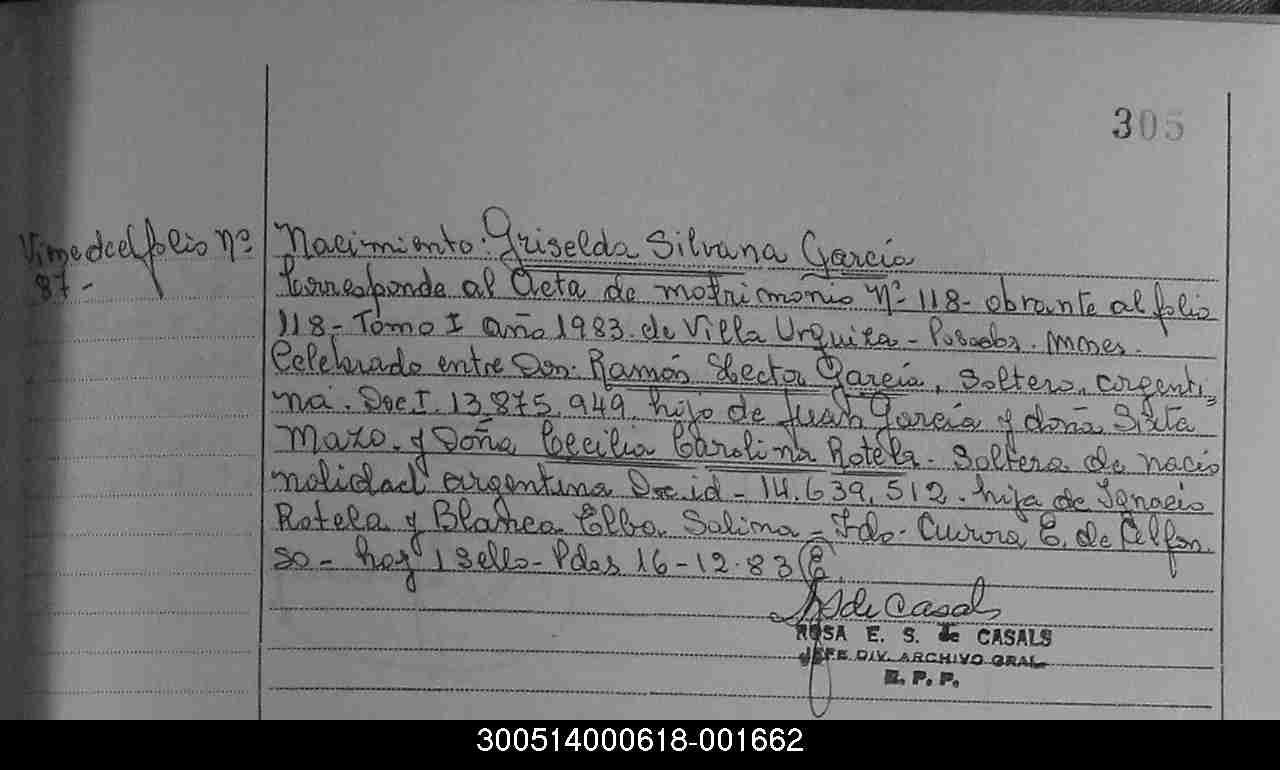 305
Viene del folio Nº
87-
Nacimiento: Griselda Silvana García
Corresponde al Acta de matrimonio Nº 118- obrante al folio
118- Tomo I año 1983. de Villa Urquiza - Posadas. Mnes.
Celebrado entre Don: Ramón Hector García, soltero, argenti
na. Doc I. 13.875.949. hijo de Juan García y doña Sixta
Mazo. y Doña Cecilia Carolina Rotela. Soltera de nacio
nalidad argentina Doc.id - 14.639.512. hija de Ignacio
Rotela y Blanca Elba Salina - Fdo. E. de
so - hay 1 sello - Pdas 16-12-83
de Casals
ROSA E. S. de CASALS
JEFE DIV. ARCHIVO GRAL.
R. P. P.
300514000618-001662